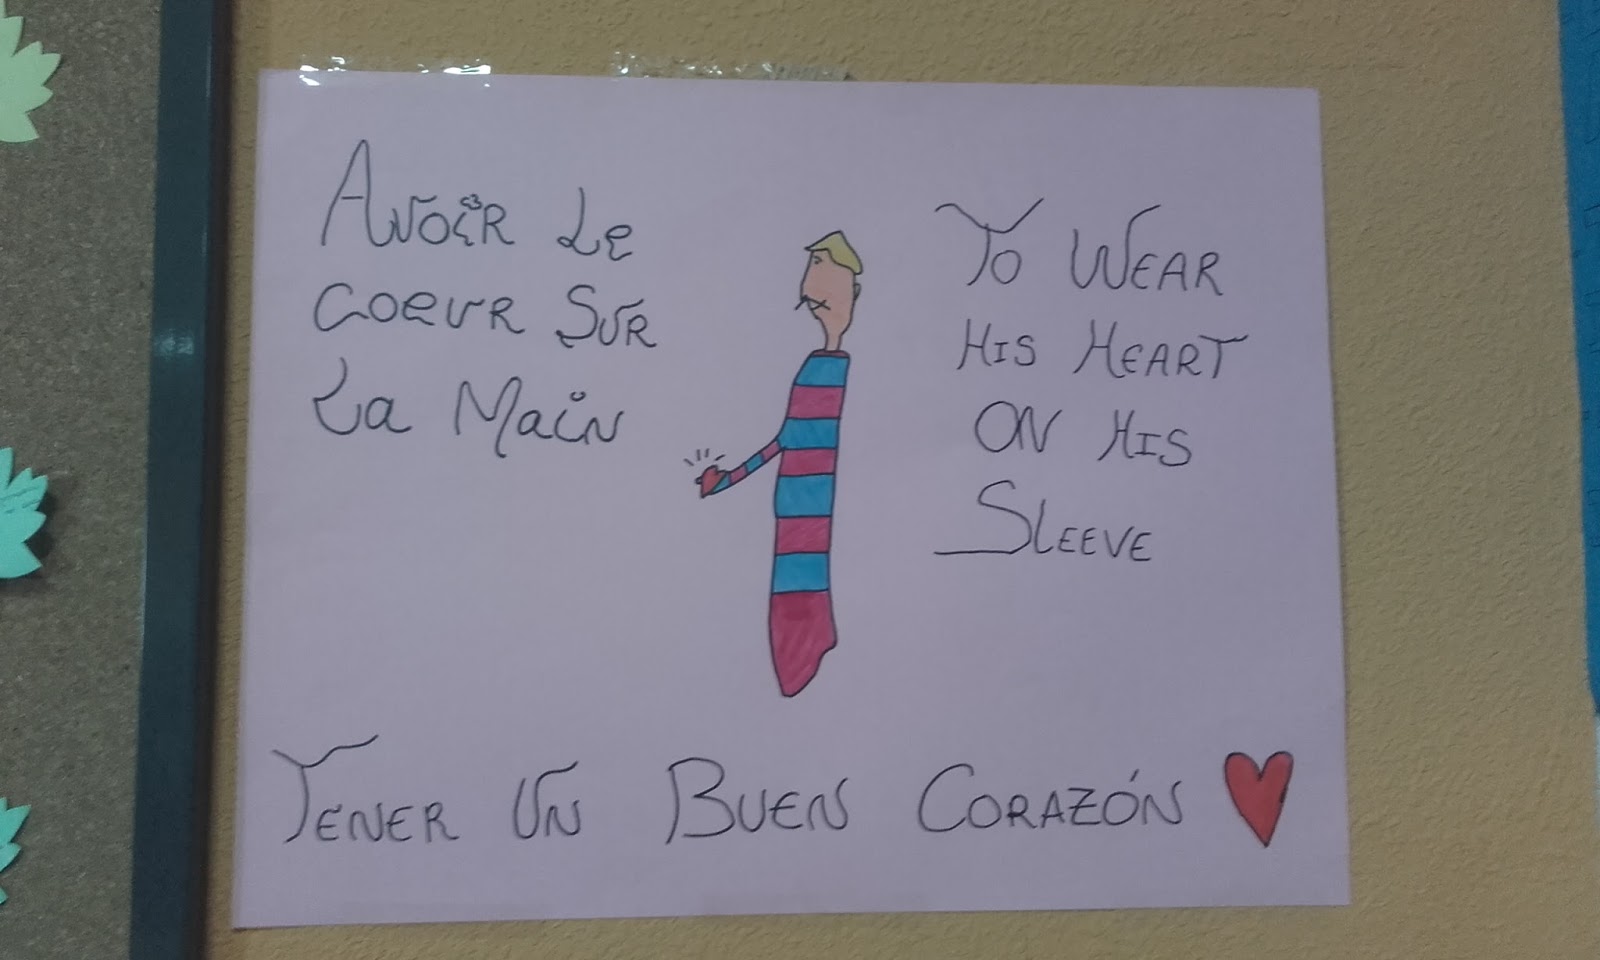 Avoir Le
coeur Sur
La Main
To Wear
His Heart
on His
Sleeve
Tener un Buen Corazón